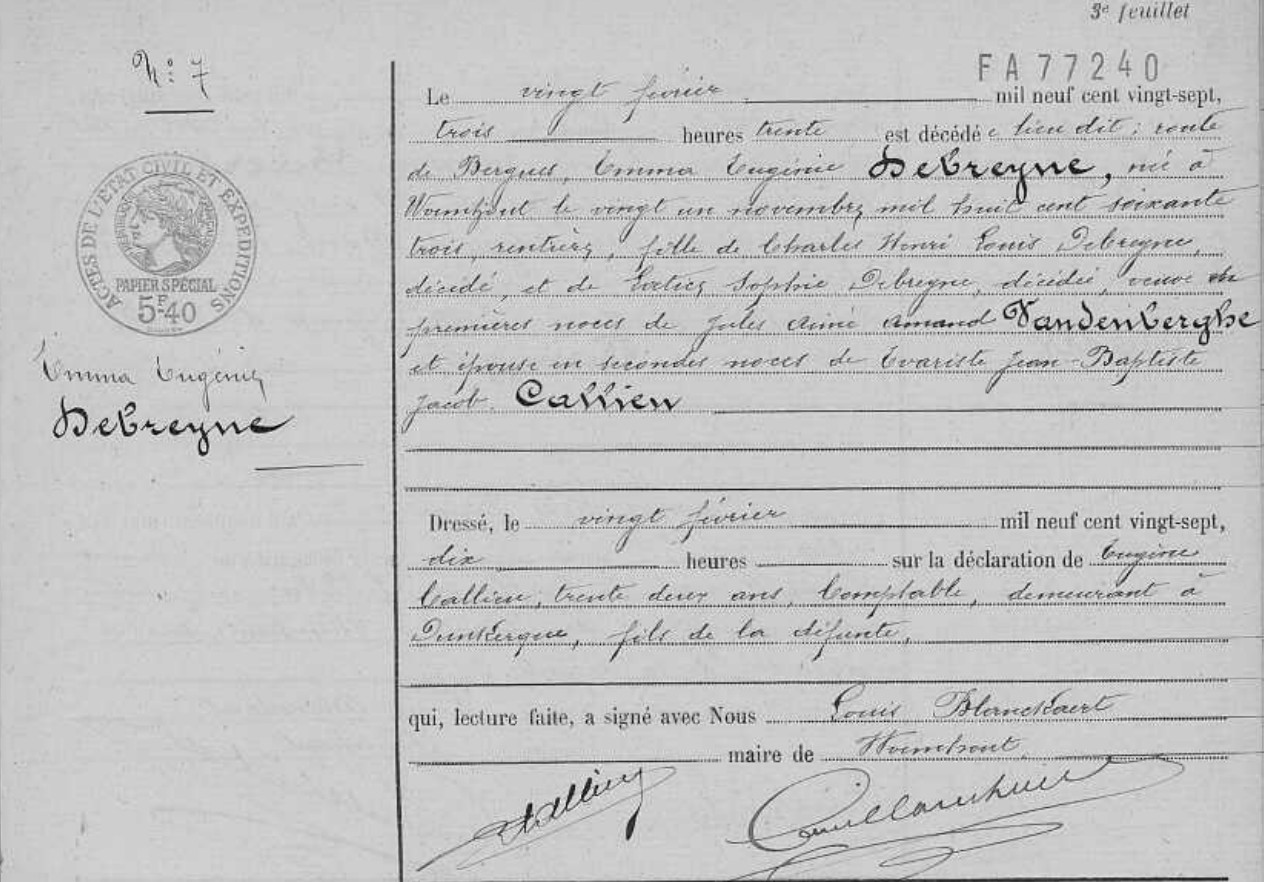 3e feuillet
N° 7
FA 77240
Le vingt février mil neuf cent vingt-sept,
trois heures trente est décédée lieu dit : route
de Bergues, Emma Eugénie Debreyne, née à
Wormhout le vingt un novembre mil huit cent soixante
trois, rentière, fille de Charles Henri Louis Debreyne,
décédé, et de Sophie Debreyne, décédée, veuve en
premières noces de Jules Aimé Amand Vandenberghe
et épouse en secondes noces de Evariste Jean-Baptiste
Jacob Callieu
ACTES DE L'ÉTAT CIVIL ET EXPÉDITIONS
PAPIER SPÉCIAL
5F40
Emma Eugénie
Debreyne
Dressé, le vingt février mil neuf cent vingt-sept,
dix heures sur la déclaration de Eugène
Callieu, trente deux ans, Comptable, demeurant à
Dunkerque, fils de la défunte,
qui, lecture faite, a signé avec Nous Louis Blanckaert
maire de Wormhout